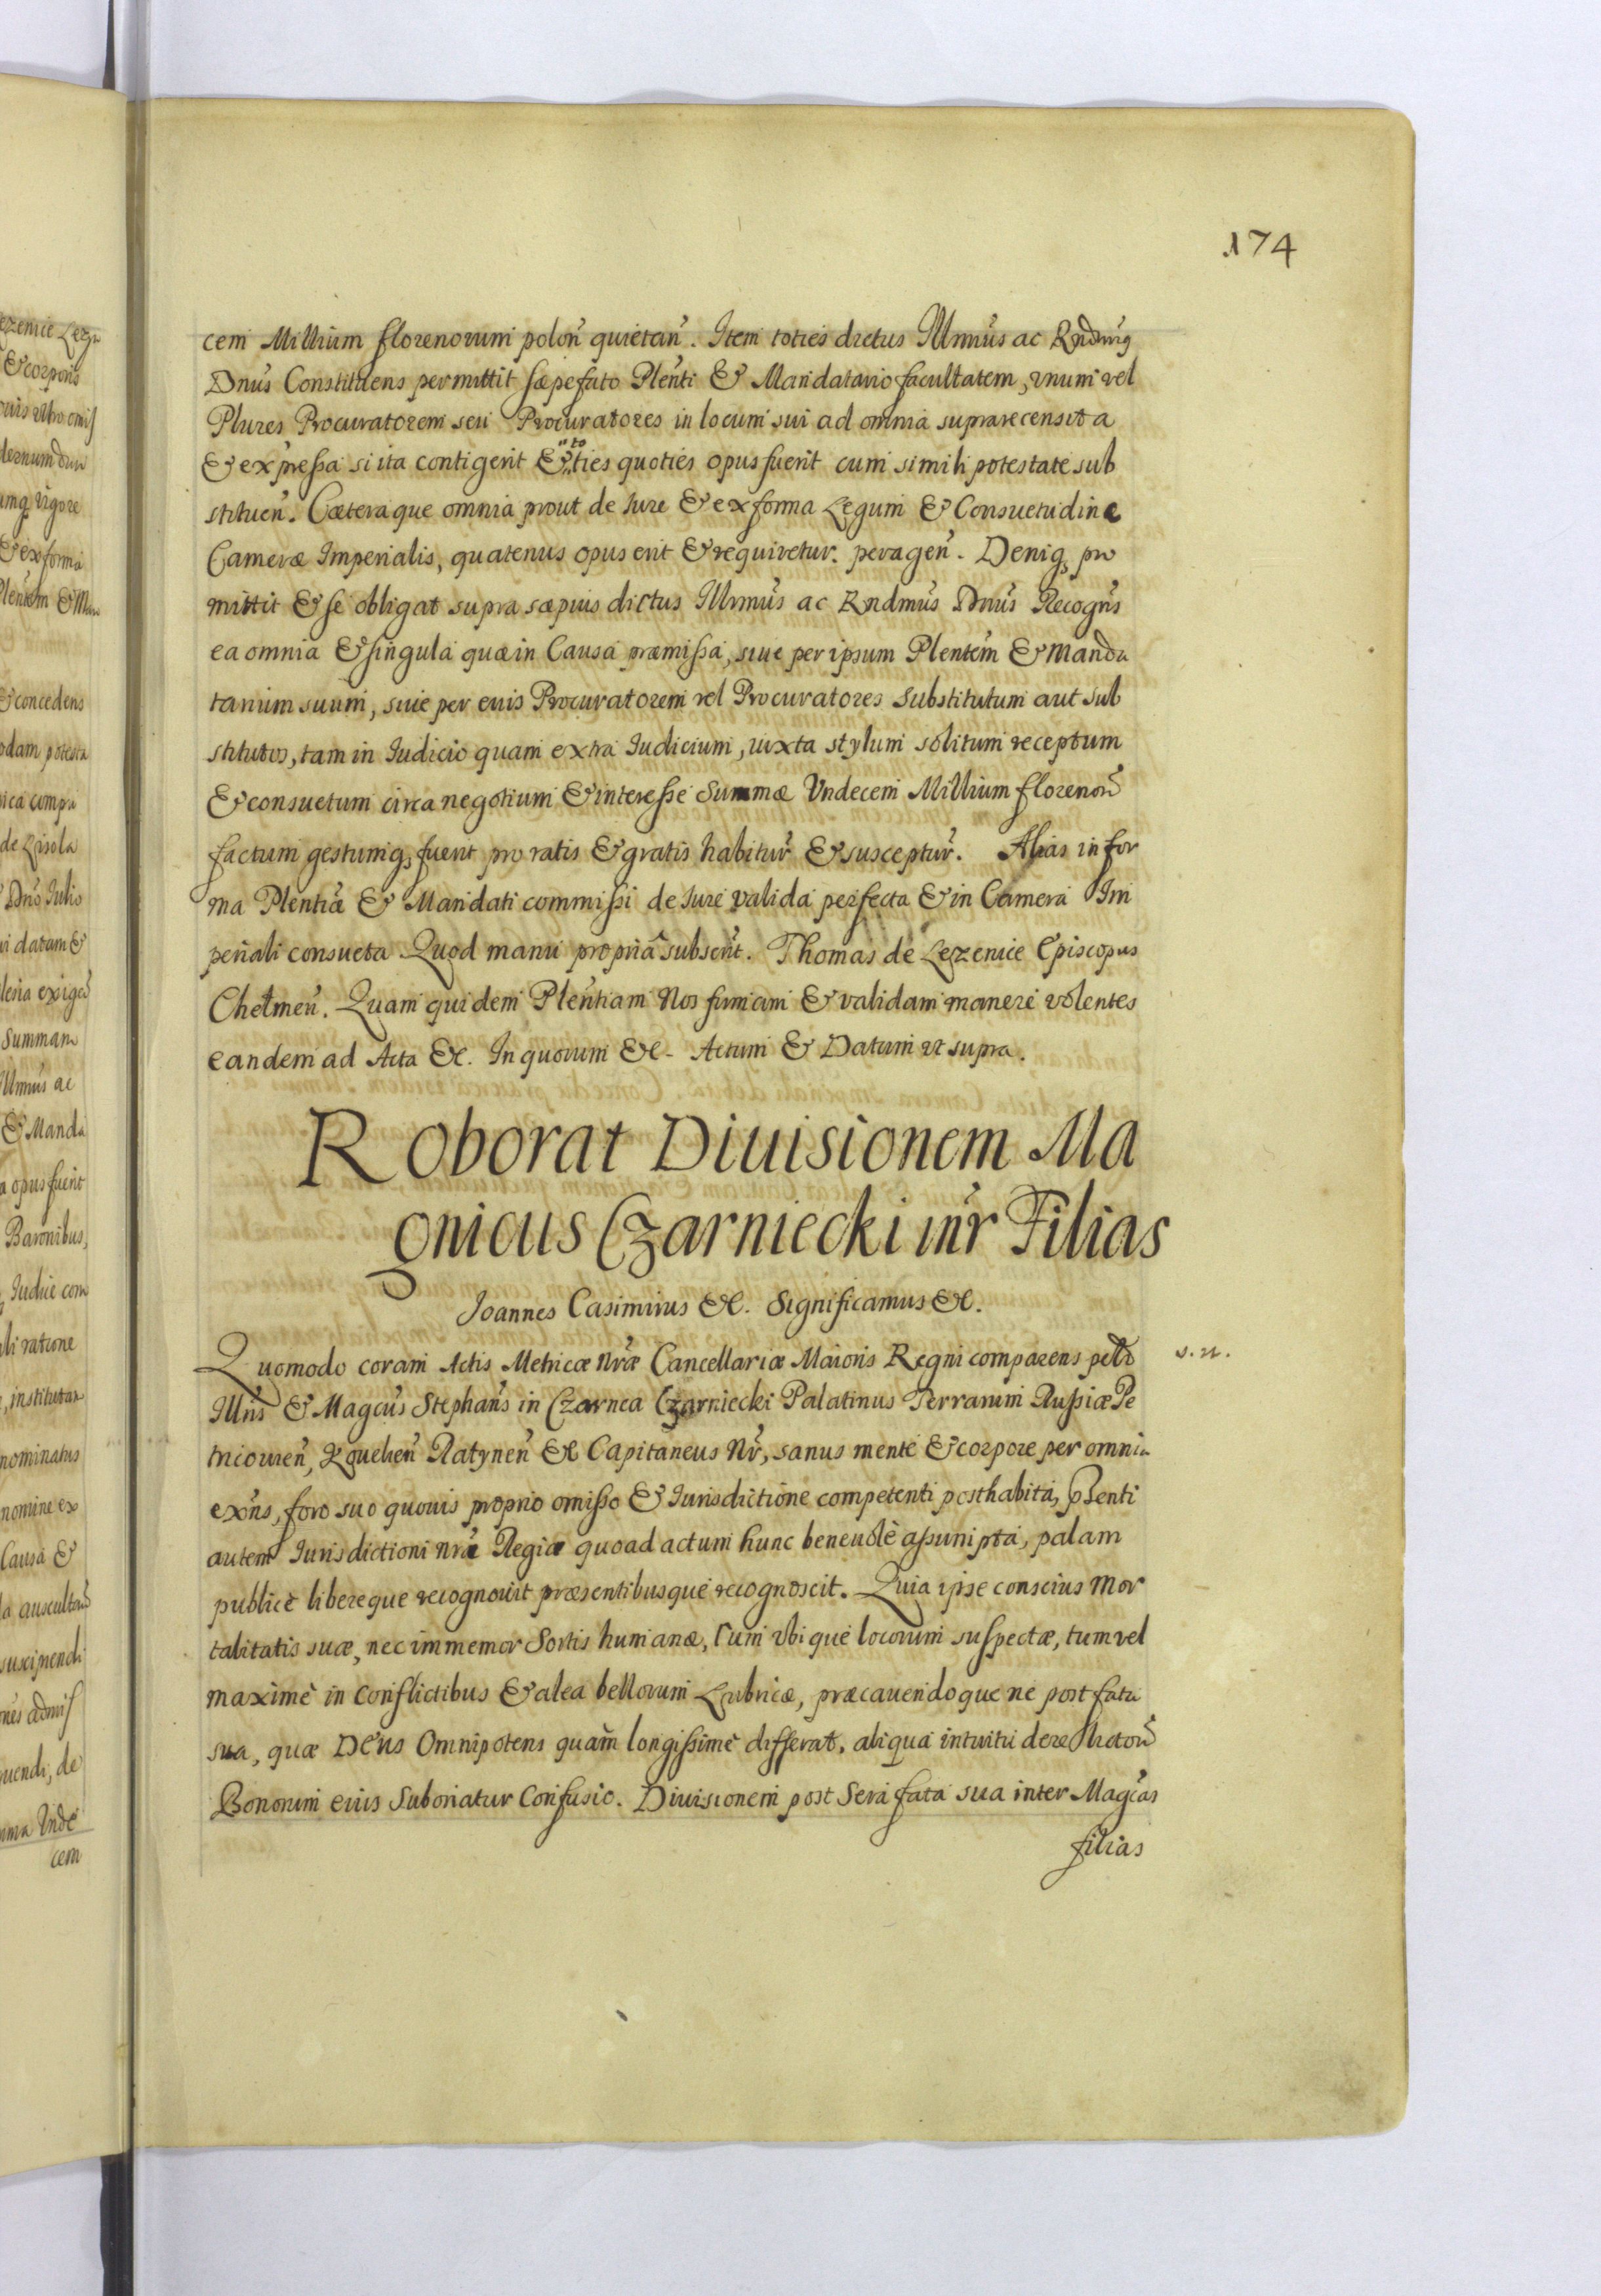 174
cem Millium florenorum polon̄ quietan̄. Item toties dictus Illmus ac Rndmus
Dnus Constituens permittit sæpefato Plenti & Mandatario facultatem, vnum vel
Plures Procuratorem seu Procuratores in locum sui ad omnia suprarecensita
& expressa si ita contigerit & toties quoties opus fuerit cum simili potestate sub
stituen̄. Cæteraque omnia prout de Iure & ex forma Legum & Consuetudine
Cameræ Imperialis, quatenus opus erit & requiretur. peragen̄. Deniq, pro
mittit & se obligat supra sæpius dictus Illmus ac Rndmus Dnus Recogns
ea omnia & singula quæ in Causa præmissa, siue per ipsum Plentem & Manda
tarium suum, siue per eius Procuratorem vel Procuratores substitutum aut sub
stitutos, tam in Iudicio quam extra Iudicium, iuxta stylum solitum receptum
& consuetum circa negotium & interesse Summæ Vndecem Millium florenor̄
factum gestumq, fuerit pro ratis & gratis habitur̄ & susceptur̄. Alias in for
ma Plentiæ & Mandati commissi de Iure valida perfecta & in Camera Im
periali consueta Quod manu propriâ subscrit. Thomas de Lezenice Episcopus
Chelmen̄. Quam quidem Plentiam Nos firmam & validam manere volentes
eandem ad Acta &c. In quorum &c- Actum & Datum vt supra.
Roborat Diuisionem Ma
gnicus Czarniecki inr̄ Filias
Joannes Casimirus &c. Significamus &c.
Quomodo coram Actis Metricæ Nræ Cancellariæ Maioris Regni comparens pelr
s. n.
Illris & Magcus Stephanus in Czarnca Czarniecki Palatinus Terrarum Russiæ Pe
tricouien̄, Kouelien̄ Ratynen̄ &c Capitaneus Nr̄, sanus mente & corpore per omnia
exn̄s, foro suo quouis proprio omisso & Iurisdictione competenti posthabita, pnti
autem Iurisdictioni nræ Regiæ quoad actum hunc beneuolè assumpta, palam
publicè libereque recognouit præsentibusque recognoscit. Quia ipse conscius Mor
talitatis suæ, nec immemor Sortis humanæ, cum vbique locorum suspectæ, tum vel
maximè in Conflictibus & alea bellorum Lubricæ, præcauendoque ne post fata
sua, quæ Deus Omnipotens quàm longissimè differat, aliqua intuitu derelictor̄
Bonorum eius Suboriatur Confusio. Diuisionem post Sera fata sua inter Magcas
filias